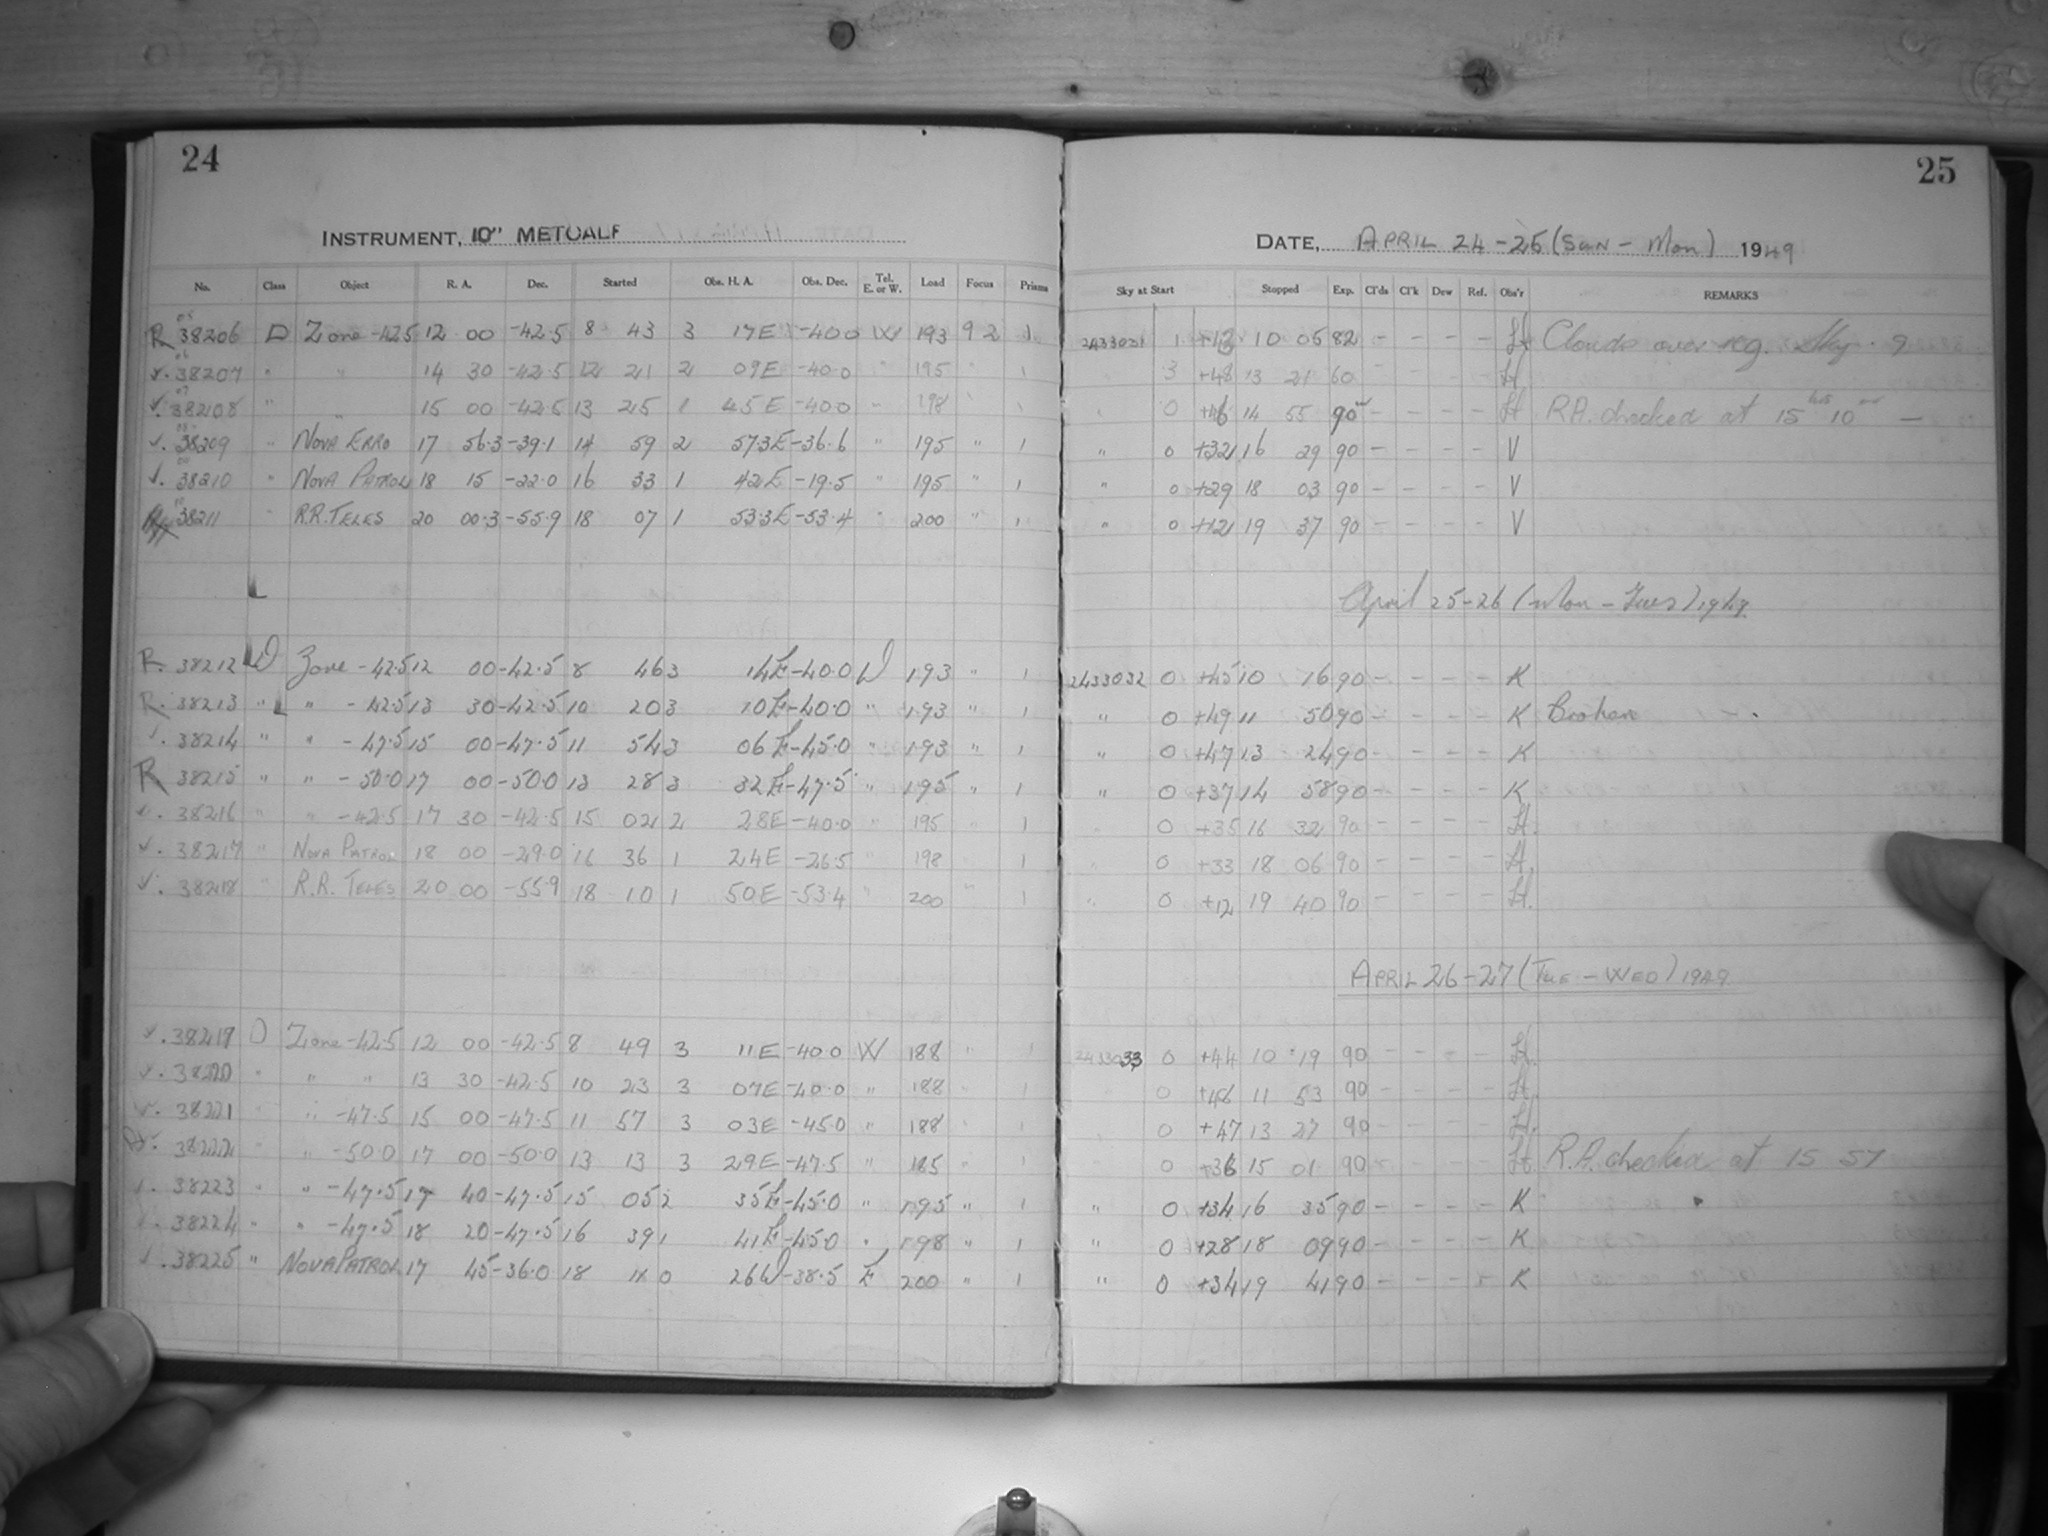 24
25
INSTRUMENT, 10" METCALF
DATE, APRIL 24-25 (SUN - MON) 1949
No. Class Object R. A. Dec. Started Obs. H. A. Obs. Dec. Tel. E. or W. Load Focus Prisms Sky at Start Stopped Exp. Cl'ds Cl'k Dew Ref. Obs'r REMARKS
R 38206 D Zone -42.5 12 00 -42.5 8 43 3 17E -40.0 W 193 9 2 1 2433031 1 +13 10 05 82 - - - - H Clouds over reg. Sky . 9
v. 38207 " " 14 30 -42.5 12 21 2 09E -40.0 195 1 3 +48 13 21 60 - - - - H
v. 38208 " " 15 00 -42.5 13 25 1 45E -40.0 " 198 0 +46 14 55 90 - - - - H R.A. checked at 15 hrs 10 m -
v. 38209 " NOVA ERRO 17 56.3 -39.1 14 59 2 57.3E -36.6 " 195 " 1 " 0 +32 16 29 90 - - - - V
v. 38210 " NOVA PATROL 18 15 -22.0 16 33 1 42E -19.5 " 195 " 1 " 0 +29 18 03 90 - - - - V
38211 " R.R. TELES 20 00.3 -55.9 18 07 1 53.3E -53.4 " 200 " 1 " 0 +12 19 37 90 - - - - V
April 25-26 (Mon - Tues) 1949
R. 38212 D Zone -42.5 12 00 -42.5 8 46 3 14E -40.0 W 193 " 1 2433032 0 +45 10 16 90 - - - - K
R. 38213 " " -42.5 13 30 -42.5 10 20 3 10E -40.0 " 193 " 1 " 0 +49 11 50 90 - - - - K Broken
v. 38214 " " -47.5 15 00 -47.5 11 54 3 06E -45.0 " 193 " 1 " 0 +47 13 24 90 - - - - K
R 38215 " " -50.0 17 00 -50.0 13 28 3 32E -47.5 " 195 " 1 " 0 +37 14 58 90 - - - - K
v. 38216 " " -42.5 17 30 -42.5 15 02 2 28E -40.0 " 195 1 0 +35 16 32 90 - - - - H.
v. 38217 " NOVA PATROL 18 00 -29.0 16 36 1 24E -26.5 " 198 1 0 +33 18 06 90 - - - - H.
v. 38218 " R.R. TELES 20 00 -55.9 18 10 1 50E -53.4 " 200 " 1 " 0 +12 19 40 90 - - - - H.
APRIL 26-27 (TUE - WED) 1949
v. 38219 D Zone -42.5 12 00 -42.5 8 49 3 11E -40.0 W 188 " 1 2433033 0 +44 10 19 90 - - - - H.
v. 38220 " " " 13 30 -42.5 10 23 3 07E -40.0 " 188 1 0 +46 11 53 90 - - - - H
v. 38221 " " -47.5 15 00 -47.5 11 57 3 03E -45.0 " 188 1 0 +47 13 27 90 - - - - H.
38222 " " -50.0 17 00 -50.0 13 13 3 29E -47.5 " 185 1 0 +36 15 01 90 - - - - H R.A. checked at 15 57
v. 38223 " -47.5 17 40 -47.5 15 05 2 35E -45.0 " 195 " 1 " 0 +34 16 35 90 - - - - K
v. 38224 " " -47.5 18 20 -47.5 16 39 1 41E -45.0 " 198 " 1 " 0 +28 18 09 90 - - - - K
v. 38225 " NOVA PATROL 17 45 -36.0 18 11 0 26W -38.5 E 200 " 1 " 0 +34 19 41 90 - - - - K